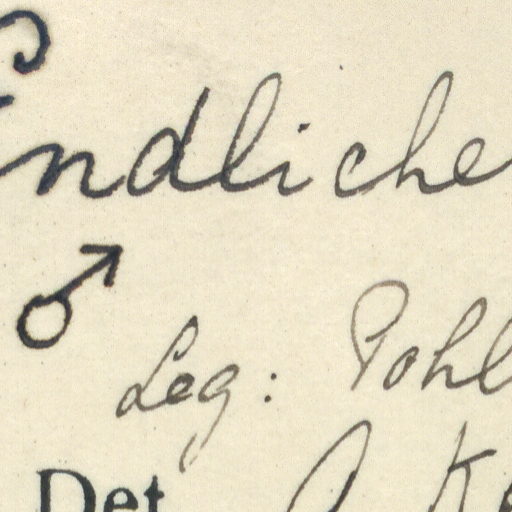 Endliche
♂
Leg: Pohl
Det